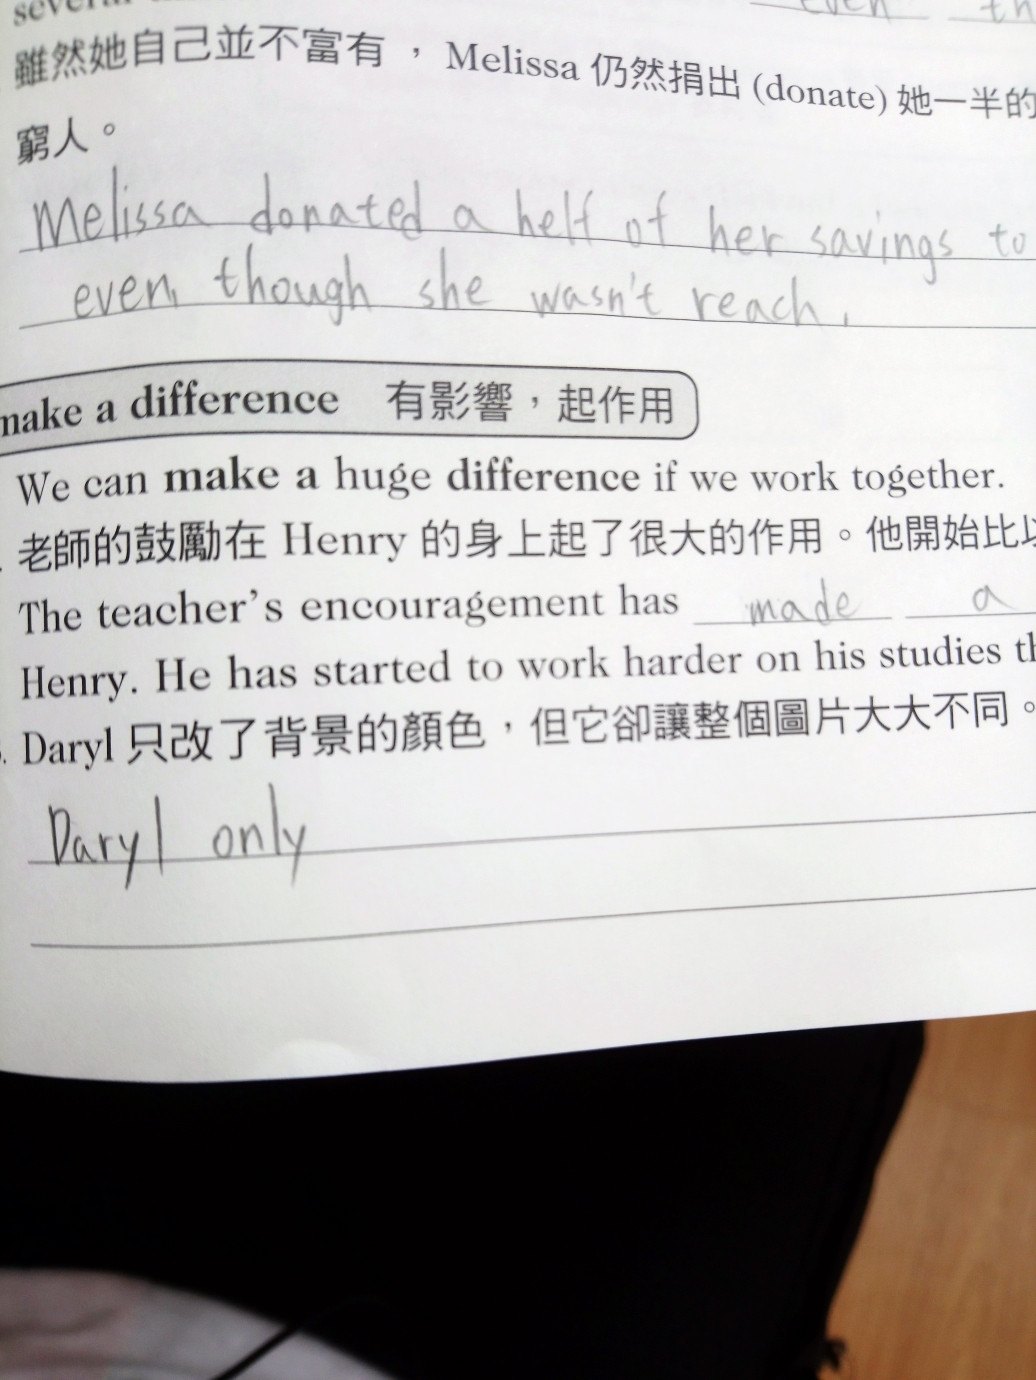 even
雖然她自己並不富有，Melissa 仍然捐出 (donate) 她一半的
窮人。
Melissa donated a helf of her savings to
even though she wasn't reach.
make a difference 有影響，起作用
We can make a huge difference if we work together.
老師的鼓勵在 Henry 的身上起了很大的作用。他開始比
The teacher's encouragement has made a
Henry. He has started to work harder on his studies
Daryl 只改了背景的顏色，但它卻讓整個圖片大大不同。
Daryl only